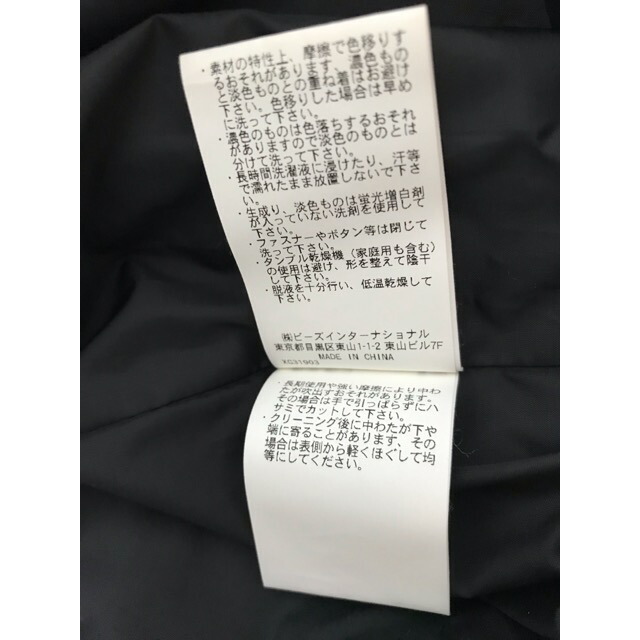 ・素材の特性上、摩擦で色移りす
るおそれがあります、濃色もの
と淡色ものとの重ね着はお避け
下さい。色移りした場合は早め
に洗って下さい。
・濃色のものは色落ちするおそれ
がありますので淡色のものとは
分けて洗って下さい。
・長時間洗濯液に浸けたり、汗等
で濡れたまま放置しないで下さ
い。
・生成り、淡色ものは蛍光増白剤
が入っていない洗剤を使用して
下さい。
・ファスナーやボタン等は閉じて
洗って下さい。
・タンブル乾燥機（家庭用も含む）
の使用は避け、形を整えて陰干
して下さい。
・脱液を十分行い、低温乾燥して
下さい。
㈱ビーズインターナショナル
東京都目黒区東山1-1-2 東山ビル7F
MADE IN CHINA
XC31903
・長期使用や強い摩擦により中わ
たが吹出すおそれがあります。
その場合は手で引っぱらずにハ
サミでカットして下さい。
・クリーニング後に中わたが下や
端に寄ることがあります、その
場合は表側から軽くほぐして均
等にしてください。